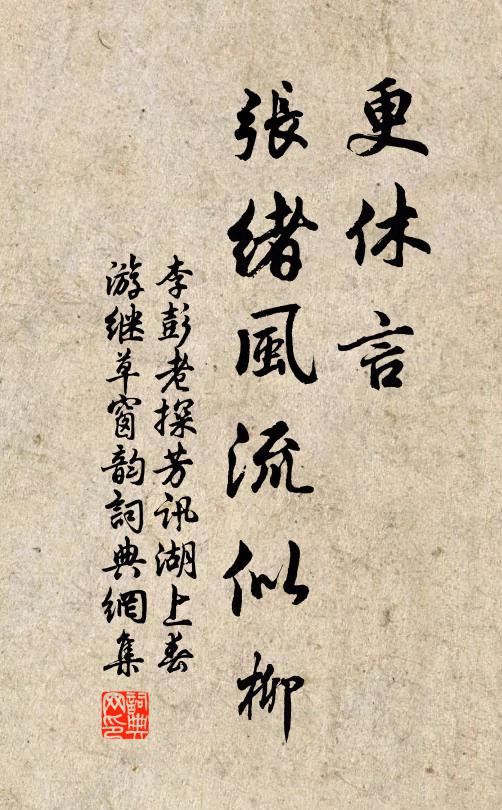 更休言
張緒風流似柳
李彭老探芳讯湖上春
游继草窗韵詞典網集
詞典网印